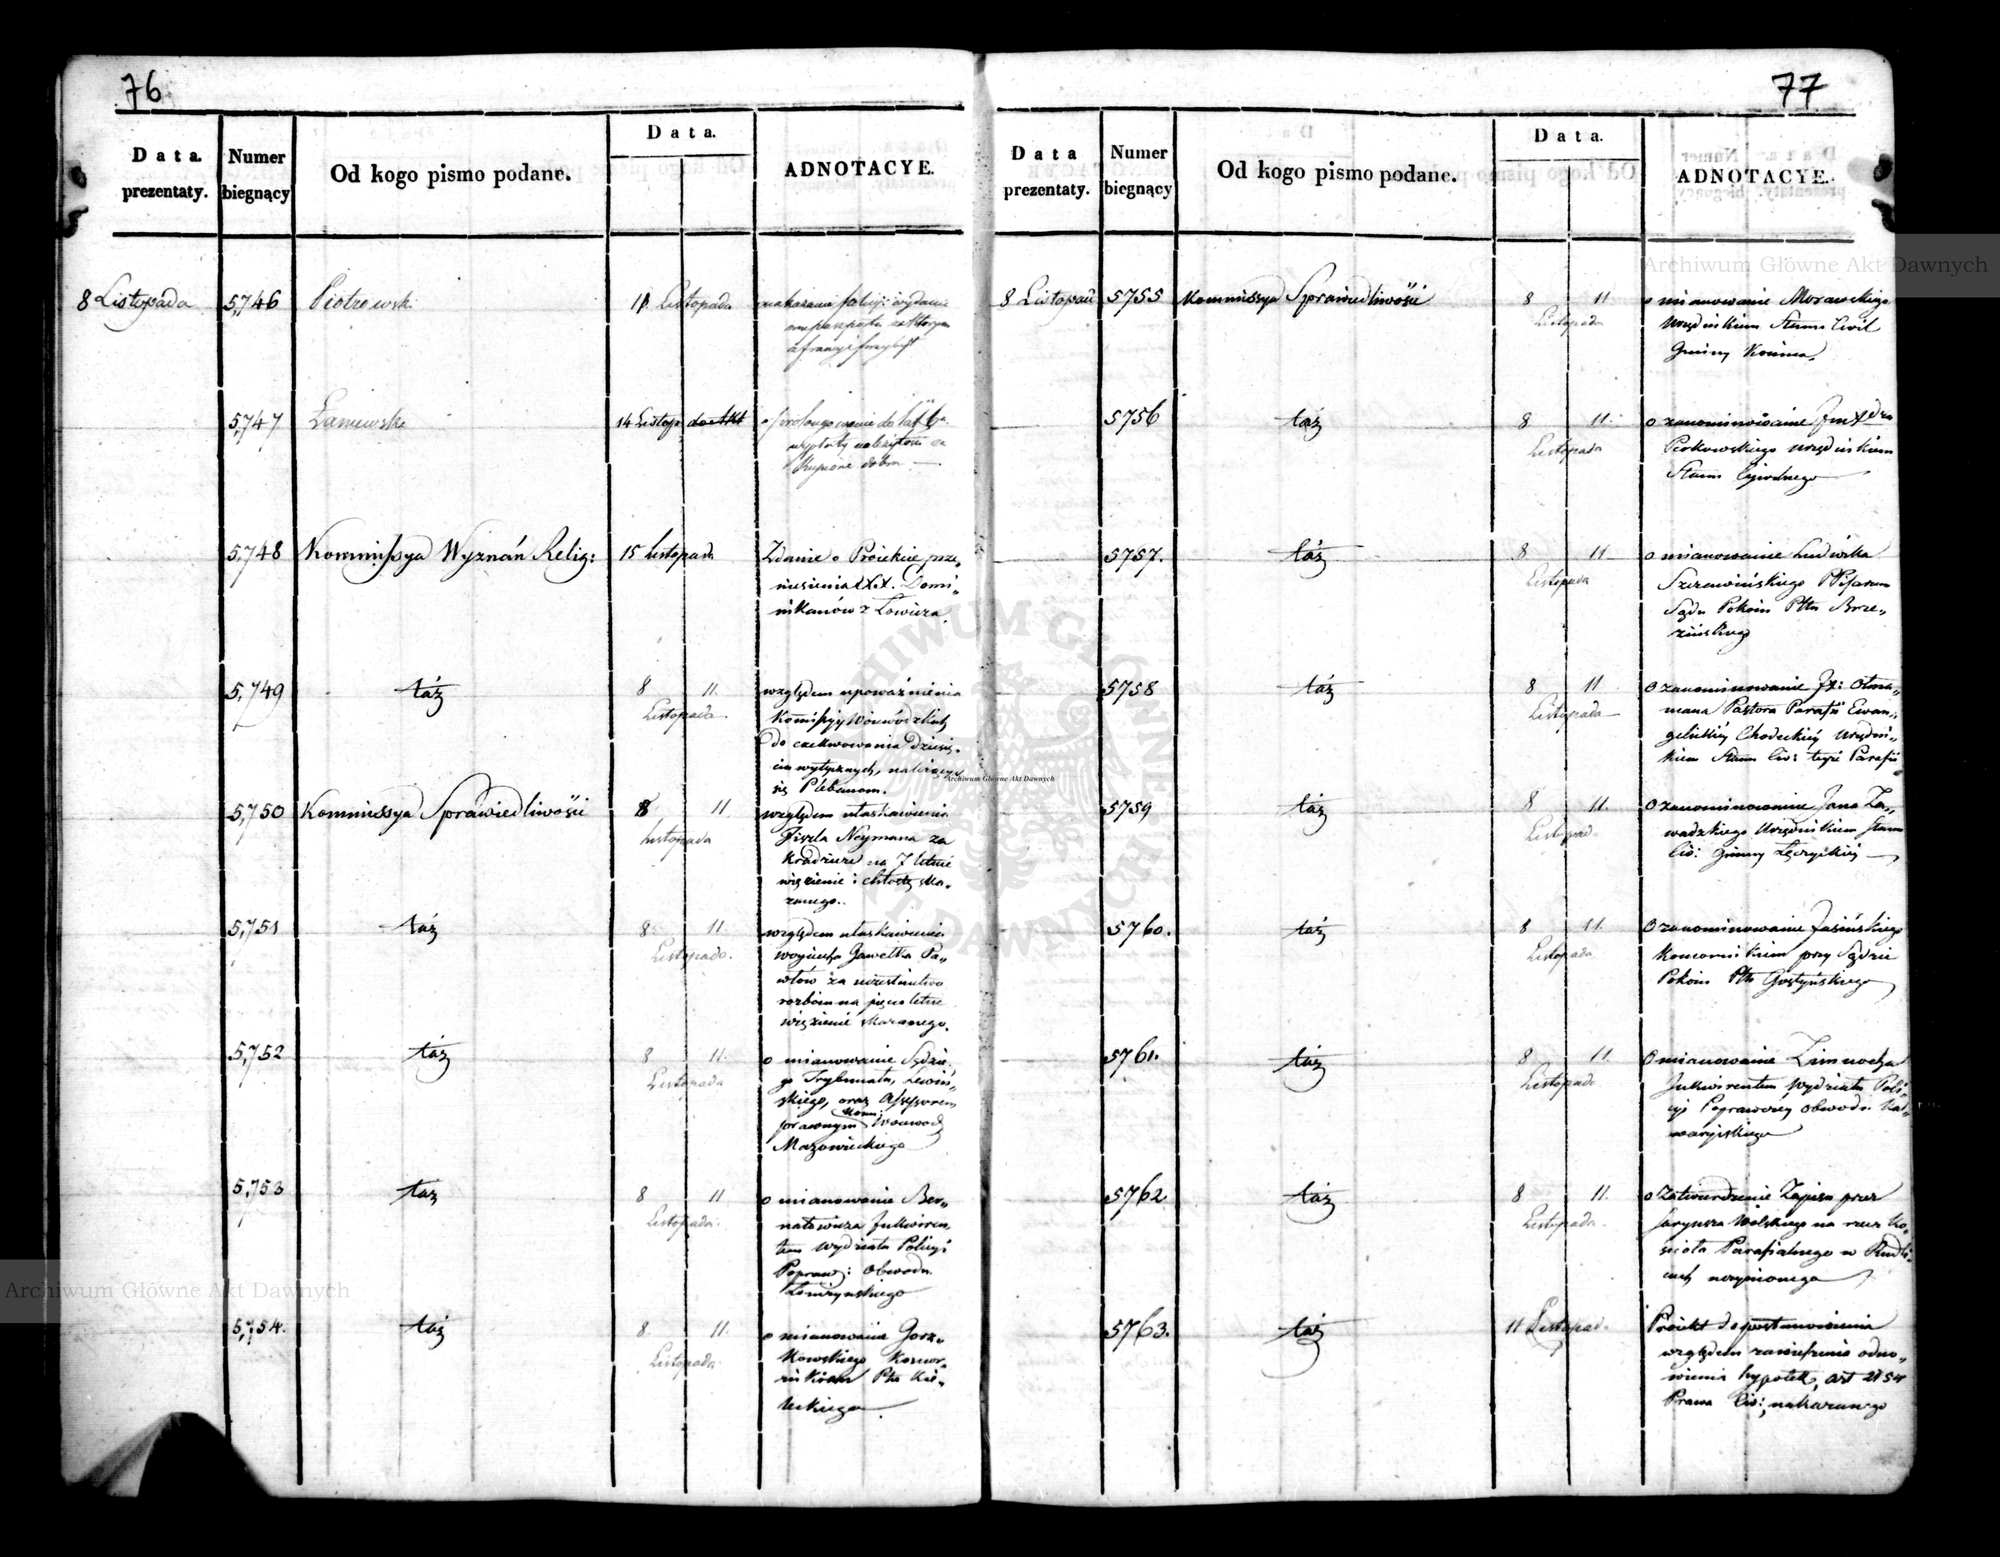 76
Data prezentaty.
Numer biegnący
Od kogo pismo podane.
Data.
ADNOTACYE.
8 Listopada 5,746 Piotrowski 11 Listopada
5,747 Łaniewski 14 Listop do Akt o prolongowanie do lat
wypłaty należytości za
kupione dobra
5,748 Kommissya Wyznań Relig: 15 Listopada Zdanie o Proiekcie prze-
niesienia XX. Domi-
nikanów z Łowicza.
5,749 táż 8 11 Listopada względem upoważnienia
Kommissyy Woiewódzkich
do
wytycznych, należących
się Plebanom.
5,750 Kommissya Sprawiedliwości 8 11 Listopada względem ułaskawienia
Fiszla Neymana za
kradzież na 7 letnie
więzienie i chłostę ska-
zanego.
5,751 táż 8 11 Listopada względem ułaskawienia
Woyciecha Gawełka Pa-
włów za uczestnictwo
rozboiu na pięcioletnie
więzienie skazanego.
5,752 táż 8 11 Listopada o mianowanie Sędzie-
go Trybunału,
skiego, oraz Assessorem
prawnym Kom: Woiewód:
Mazowieckiego
5,753 táż 8 11 Listopada o mianowanie Ber-
natowicza Inkwiren-
tem Wydziału Policyi
Popraw: Obwodu
Łomżyńskiego
5,754. táż 8 11 Listopada o mianowanie Gorz-
kowskiego Komor-
nikiem Ptu Kie-
leckiego
77
Data prezentaty.
Numer biegnący
Od kogo pismo podane.
Data.
ADNOTACYE.
8 Listopad 5755 Kommissya Sprawiedliwości 8 11 Listopada o mianowanie Morawskiego
Urzędnikiem Stanu Civil
Gminy
5756 táż 8 11 Listopada o zanominowanie
Piotrowskiego urzędnikiem
Stanu Cywilnego
5757. táż 8 11 Listopada o mianowanie Ludwika
Szczawińskiego Pisarzem
Sądu Pokoiu Ptu Brze-
zińskiego
5758 táż 8 11 Listopada o zanominowanie Otma-
mana Pastora Parafii Ewan-
gelickiey Chodeckiey Urzędni-
kiem Stanu Civ: teyże Parafii
5759 táż 8 11. Listopada o zanominowanie Jana Za-
wadzkiego Urzędnikiem Stanu
Civ: Gminy Łęczyckiey
5760. táż 8 11. Listopada O zanominowanie Jasińskiego
Komornikiem przy Sądzie
Pokoiu Ptu Gostyńskiego
5761. táż 8 11. Listopada o mianowanie Zimnocha
Inkwirentem Wydziału Poli-
cyi Poprawczey Obwodu Kal-
waryiskiego
5762. táż 8 11. Listopada o zatwierdzenie Zapisu przez
Wolskiego na rzecz Ko-
ścioła Parafialnego w
uczynionego
5763. táż 11 Listopada Proiekt do postanowienia
względem zawieszenia odno-
wienia hypotek, art 2154
Prawa Civ: nakazanego
Archiwum Główne Akt Dawnych
Archiwum Główne Akt Dawnych
Archiwum Główne Akt Dawnych
ARCHIWUM GŁÓWNE AKT DAWNYCH